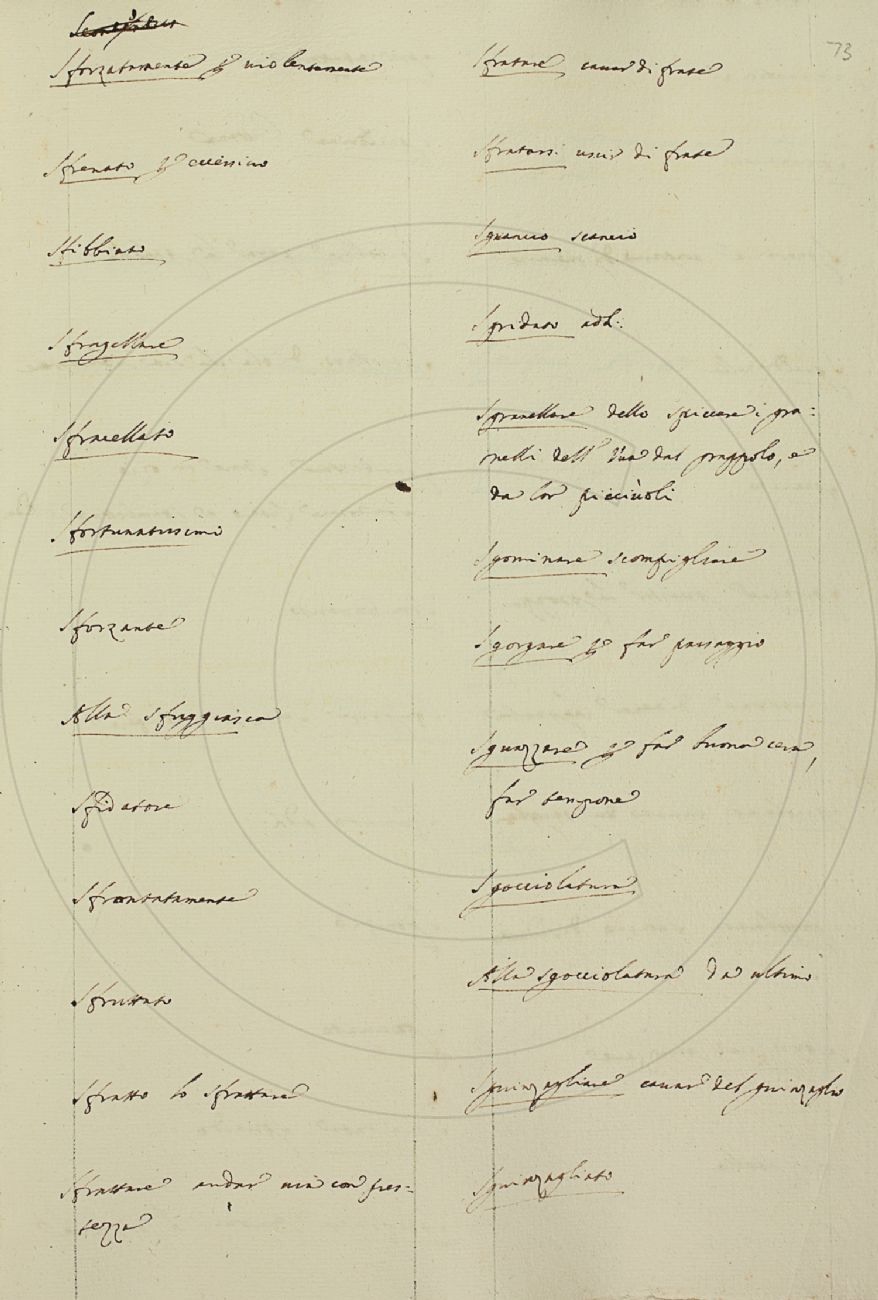 73
Sforzatamente p violentemente
Sfrenato p eccessivo
Sfibbiato
Sfragellare
Sfracellato
Sfortunatissimo
Sforzante
Alla sfuggiasca
Sfidatore
Sfrontatamente
Sfruttato
Sfratto lo sfrattare
Sfrattare andar via con pres-
tezza
Sfratare cavar di frate
Sfratarsi uscir di frate
Sguancio scancio
Sgridato add:
Sgranellare dello spiccare i gra:
nelli dell' Uva dal grappolo, e
da lor picciuoli
Sgominare scompigliare
Sgorgare p far passaggio
Sguazzare p far buona cera,
far tenzone
Sgocciolatura
Alla sgocciolatura da ultimo
Sguinzagliare cavar del guinzaglio
Sguinzagliato